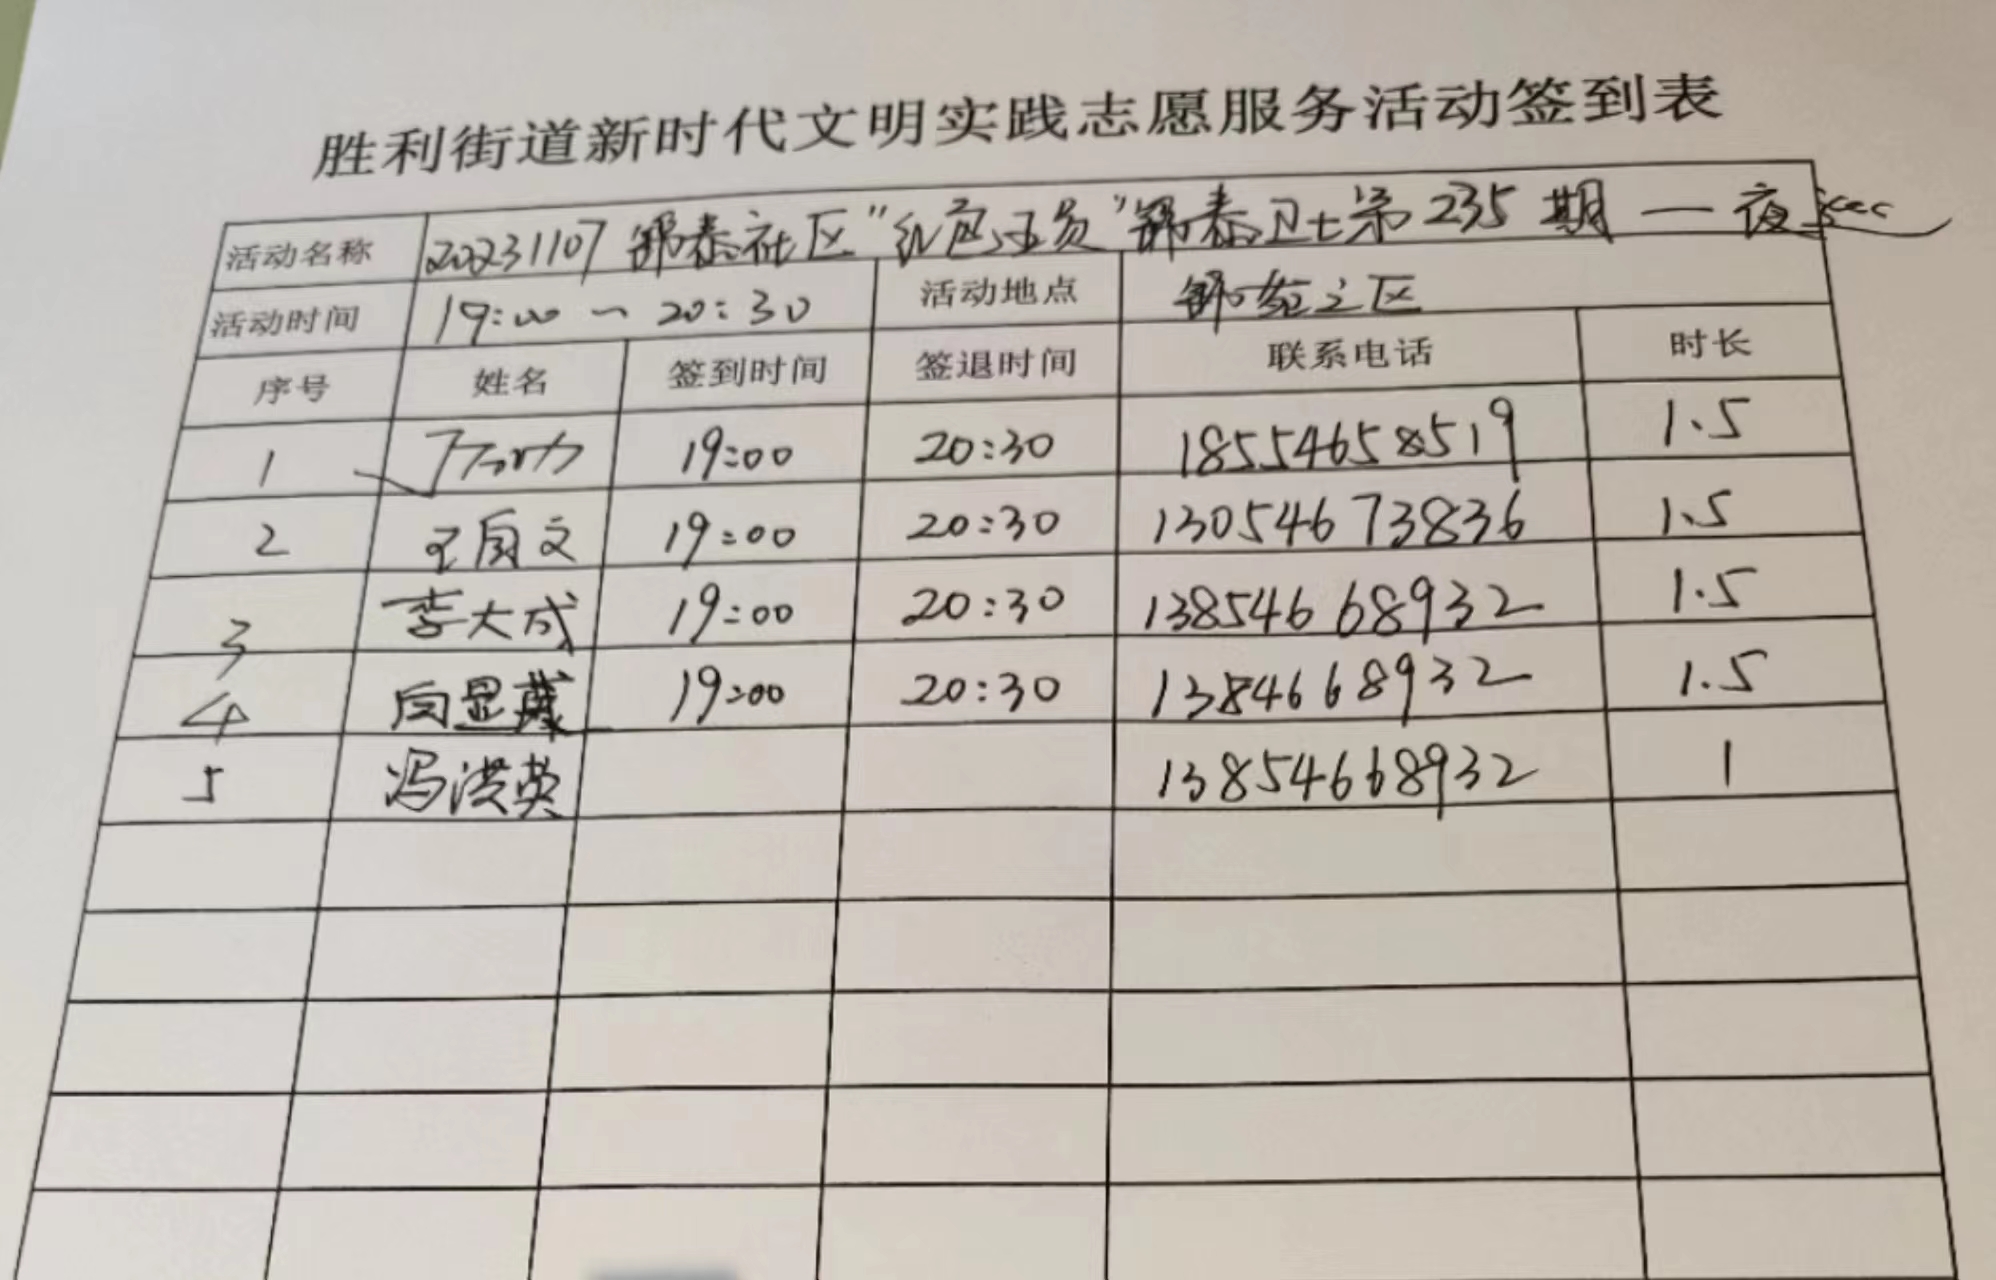 胜利街道新时代文明实践志愿服务活动签到表
活动名称 20231107 锦泰社区"红色"锦泰卫士第235期 — 夜
活动时间 19:00 ~ 20:30 活动地点 区
序号 姓名 签到时间 签退时间 联系电话 时长
1 19:00 20:30 18554658519 1.5
2 文 19:00 20:30 13054673836 1.5
3 李大成 19:00 20:30 13854668932 1.5
4 向显 19:00 20:30 1384668932 1.5
5 冯洪英 13854668932 1